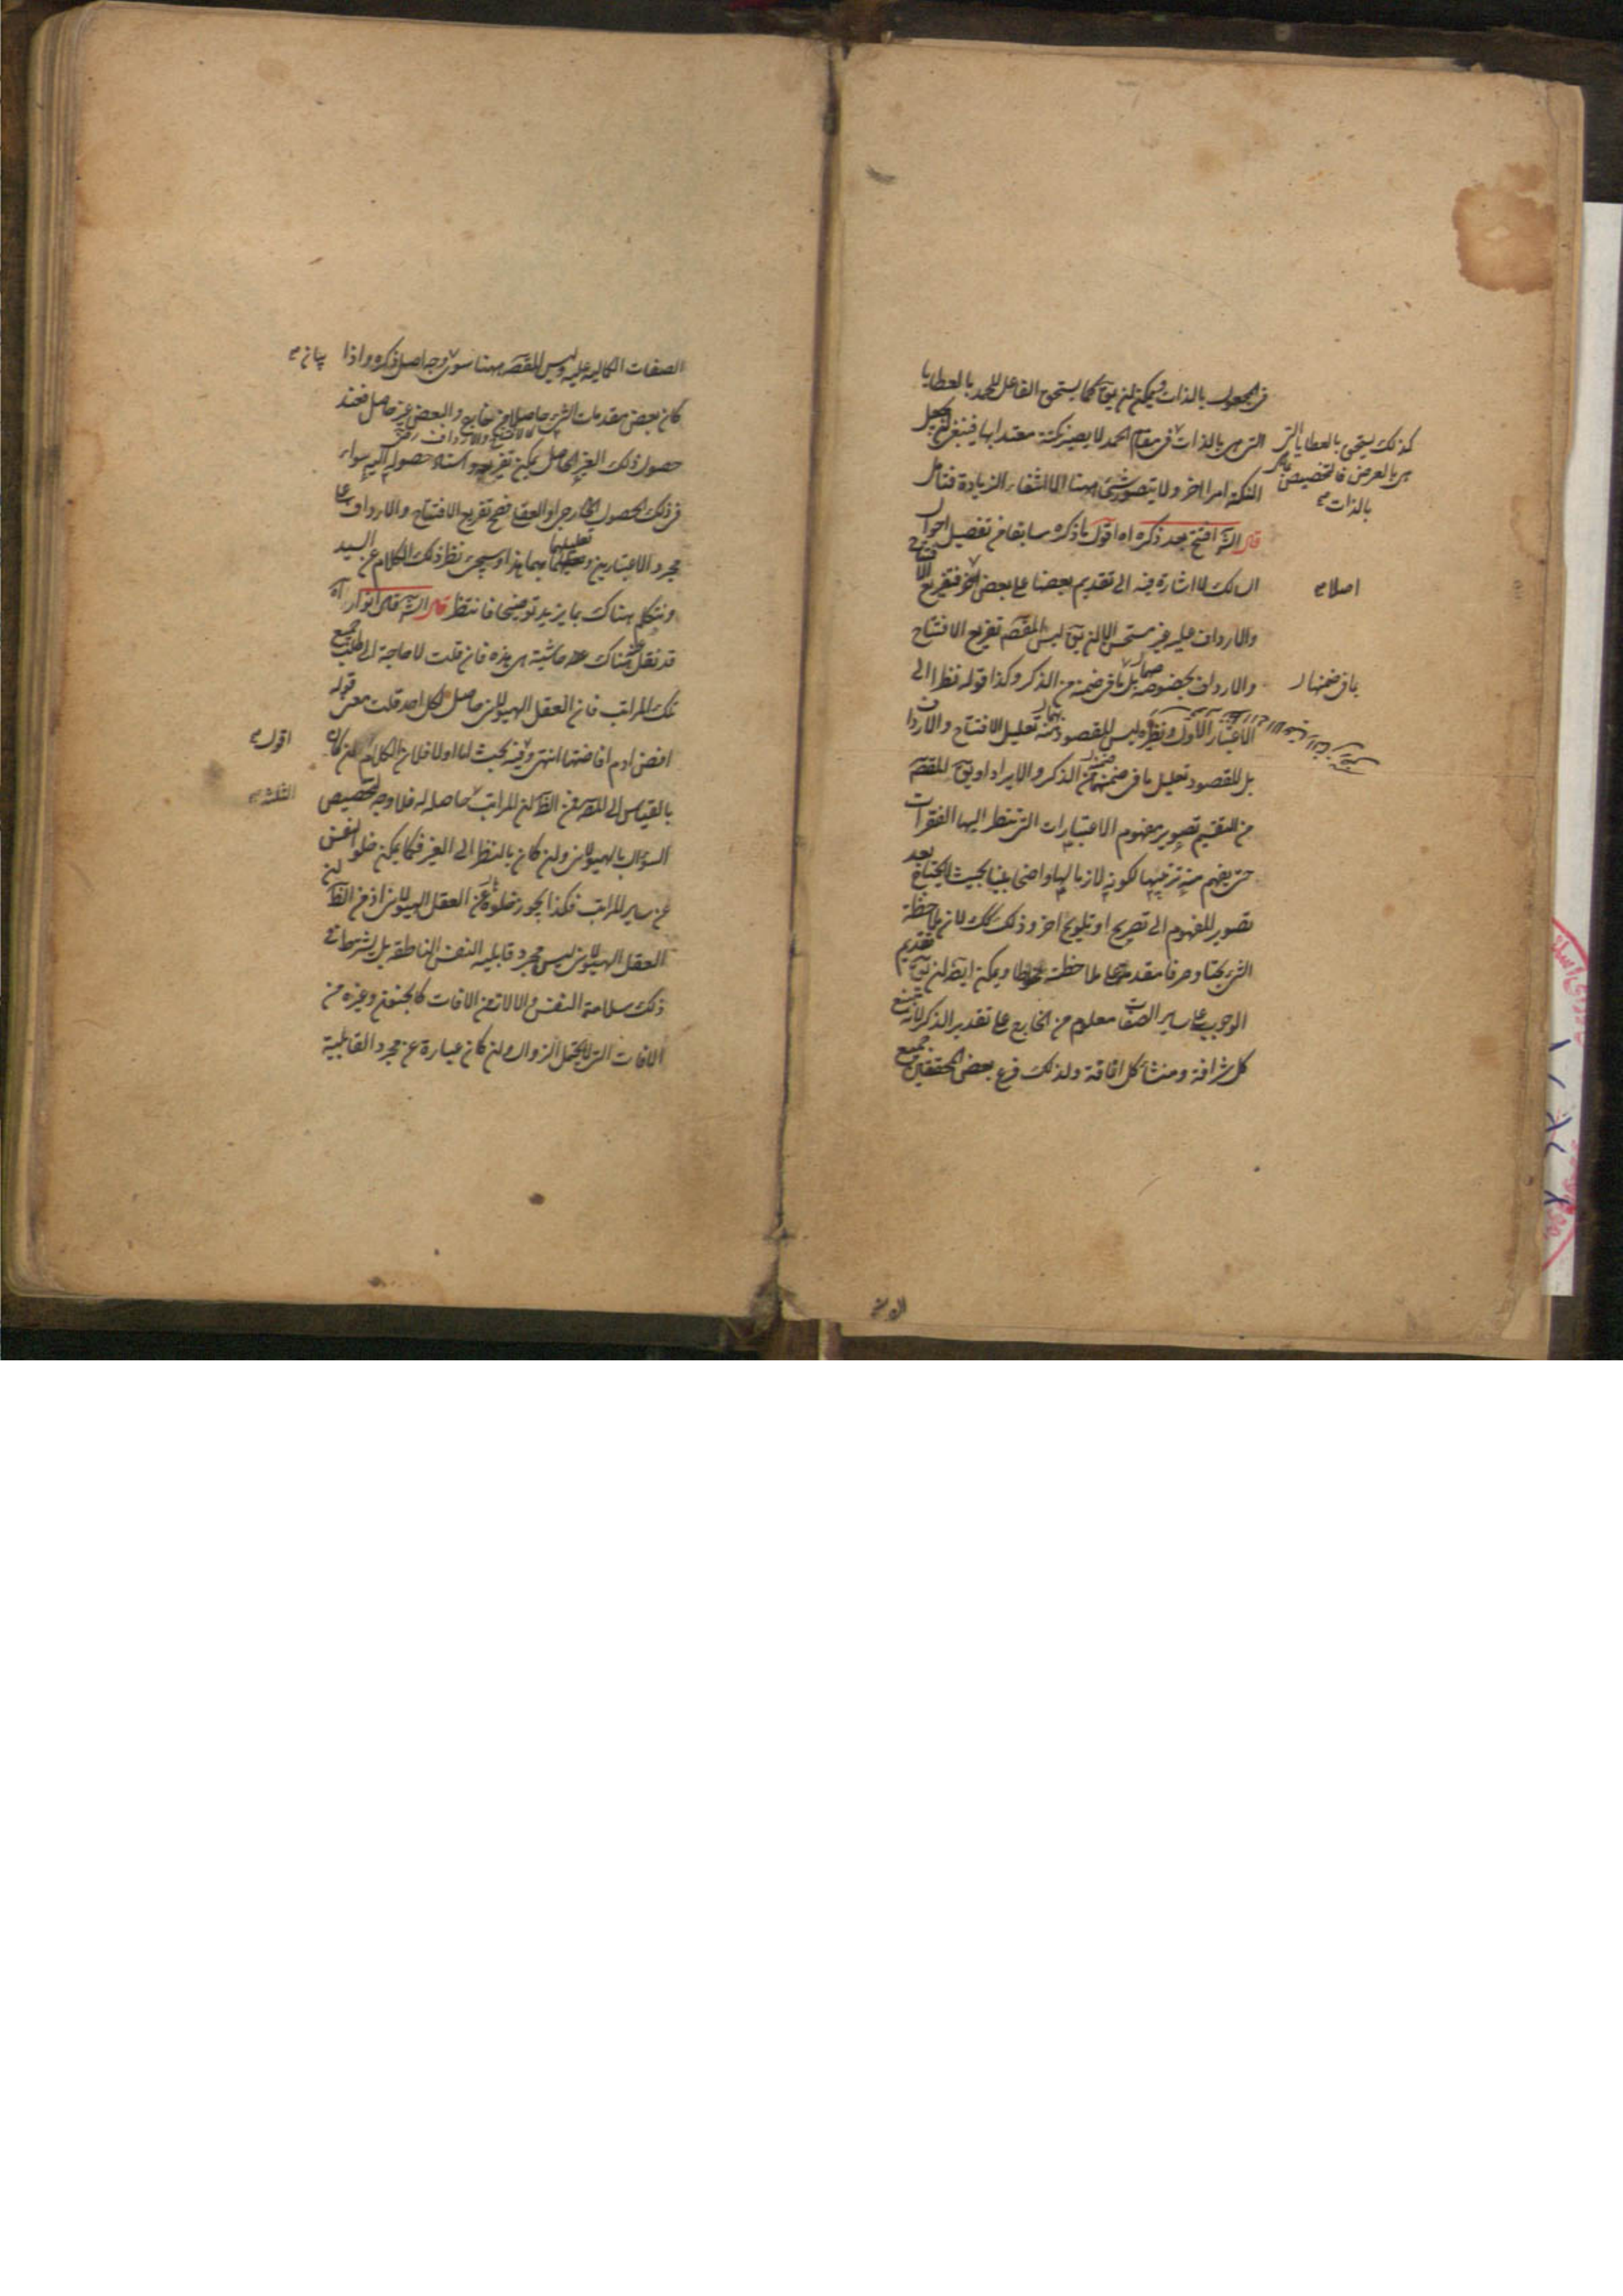 في المجعول بالذات ويمكن ان يق كما يستحق الفاعل للحمد بالعطايا
كذلك يستحق بالعطايا التي
هي بالعرض فالتخصيص
بالذات
التي هي بالذات في مقام الحمد لا يصير نكتة معتدا بها فينبغي ان يجعل
النكتة امرا اخر ولا يتصور شيء ههنا الا الشفاء الزيادة فتأمل
قال الش افتتح بعد ذكره اه اقول ما ذكره سابقا من تفصيل احوال
السالك لا اشارة فيه الى تقديم بعضها على بعض اخر فتفريع الافتتاح
اصلا
والارداف عليه غير مستحسن الا ان يق ليس المقصم تفريع الافتتاح
والارداف بخصوصهما بل ما في ضمنه من الذكر وكذا قوله نظرا الى
ما في ضمنها
الاعتبار الاول ونظره ليس المقصود منه تعليل الافتتاح والارداف
بل المقصود تعليل ما في ضمنهما من الذكر والايراد او يق المقصم
من التقسيم تصوير مفهوم الاعتبارات التي تنظر اليها الفقرات
حتى يفهم منه ترتيبها لكونه لازما لها واضحا بينا بحيث لا يحتاج بعد
تصوير المفهوم الى تصريح او تلويح اخر وذلك كك لان ملاحظة
الشيء بحتا وصرفا مقدمة على ملاحظته مخلوطا ويمكن ايضا ان يق تقديم
الوجوب على ساير الصفات معلوم من الخارج على تقدير الذكر لانه منبع
كل شرافة ومنشأ كل اناقة ولذلك فرع بعض المحققين جميع
الصفات الكمالية عليه وليس المقصم ههنا سوى وجه اصل ذكره واذا
بيان
كان بعض مقدمات الشيء حاصلا من خارج والبعض غير حاصل فعند
كالافتتاح والارداف
حصول ذلك الغير الحاصل يمكن تفريعه واسناد حصوله اليه سواء
في ذلك الحصول الخارجي او العقلي فصح تفريع الافتتاح والارداف على
مجرد الاعتبارين وتعليلهما بهما هذا وسيجيء نظير ذلك الكلام عن السيد
ونتكلم هناك بما يزيد توضيحا فانتظر قال الش قال انوار اه
قد نقل هناك عنه حاشية هي هذه فان قلت لا حاجة الى طلب جميع
تلك المراتب فان العقل الهيولاني حاصل لكل احد قلت معنى قوله
افض ادم افاضتها انتهى وفيه بحث اما اولا فلان الكلام ان كان
اقول
بالقياس الى المص فمن الظ ان المراتب حاصلة له فلا وجه لتخصيص
الثلثة
السؤال بالهيولاني وان كان بالنظر الى الغير فكما يمكن خلو النفس
عن ساير المراتب فكذا يجوز خلوه عن العقل الهيولاني اذ من الظ ان
العقل الهيولاني ليس مجرد قابلية النفس الناطقة بل يشترط في
ذلك سلامة النفس والالات من الافات كالجنون وغيره من
الافات التي لا يحتمل الزوال وان كان عبارة عن مجرد القابلية